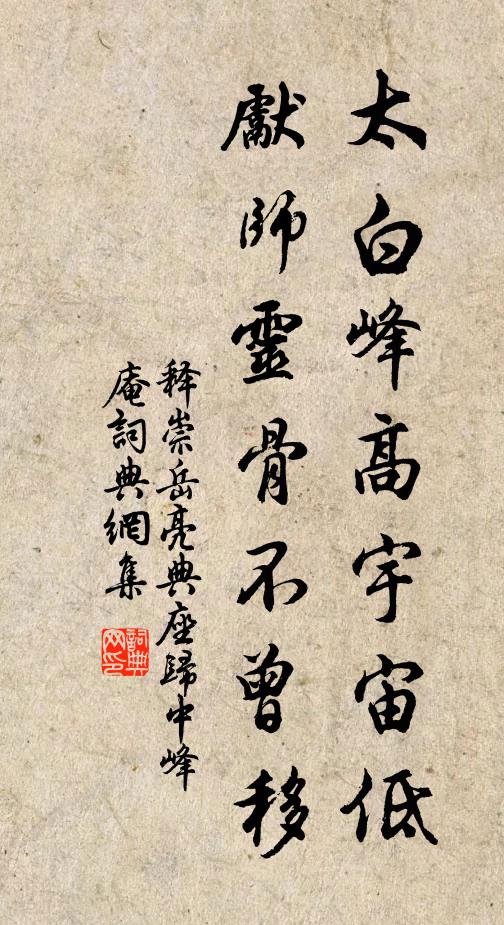 太白峰高宇宙低
獻師靈骨不曾移
释崇岳亮典座歸中峰
庵詞典網集
詞典
网印